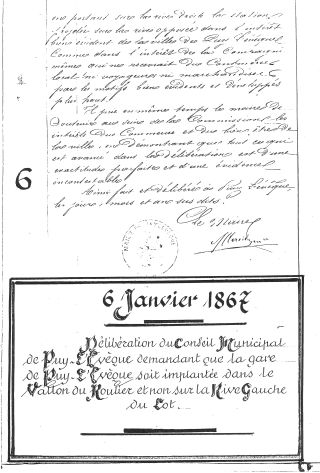 en portant sur la rive droite la station,
rejetée sur la rive opposée dans l'intérêt
bien évident de la ville de Puy l'Evêque
comme dans l'intérêt de la Compagnie
même qui ne recevrait des Cantons
local ni voyageurs ni marchandises
par les motifs bien évidents et développés
plus haut.
Il prie en même temps le maire de
soutenir au sein de la Commission les
intérêts du Commerce et du bien être de
la ville, en démontrant que tout ce qui
est avancé dans la délibération est d'une
exactitude parfaite et d'une évidence
incontestable.
Ainsi fait et délibéré à Puy l'Evêque
les jours, mois et ans susdits.
Le Maire
6
6 Janvier 1867
Délibération du Conseil Municipal
de Puy-L'Evêque demandant que la gare
de Puy-L'Evêque soit implantée dans le
Vallon du Roulier et non sur la Rive Gauche
du Lot.